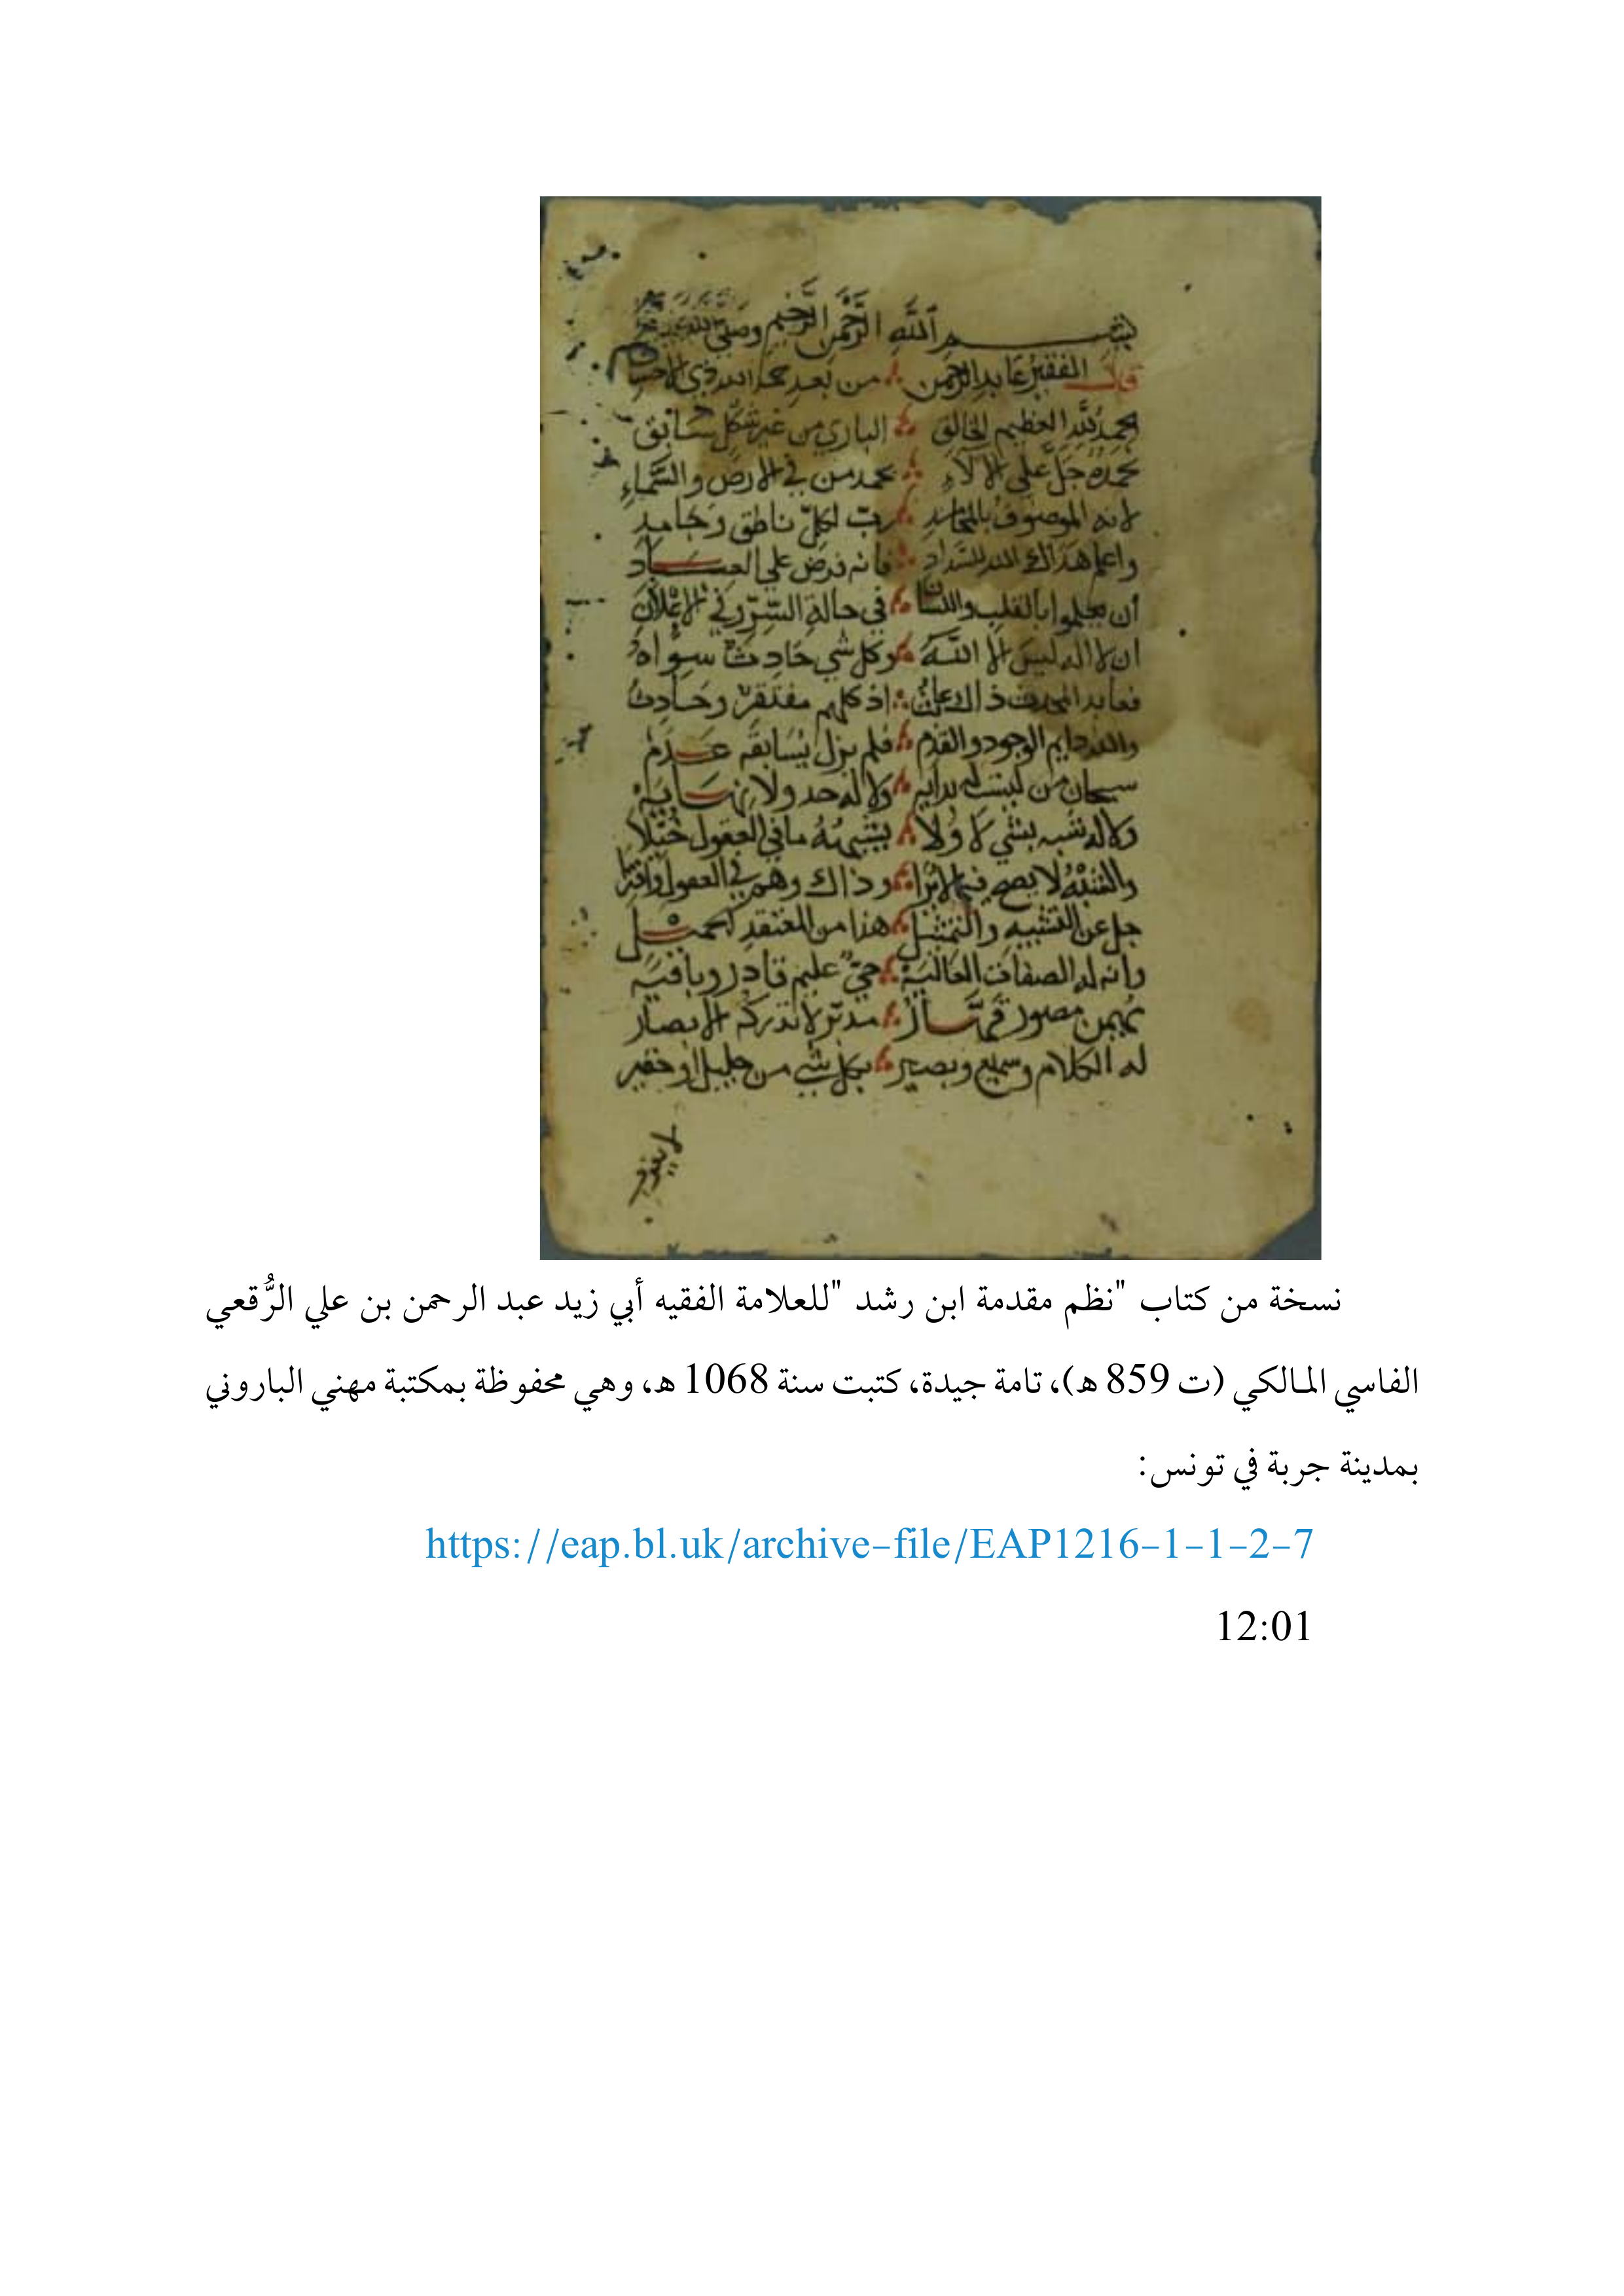 بسم الله الرحمن الرحيم وصلى الله
قال الفقير عابد الرحمن من بعد حمد الله ذي الاحسان
الحمد لله العظيم الخالق الباري من غير شكل سابق
نحمده جل على الالاء محمد من في الارض والسماء
لانه الموصوف بالمحامد رب لكل ناطق وجامد
واعلم هداك الله للسداد فانه فرض على العباد
أن يعلموا بالقلب واللسان في حالة السر وفي الاعلان
ان لا اله ليس الا الله وكل شي حادث سواه
فعابد المحدث ذاك اذ كلهم مفتقر وحادث
والله دايم الوجود والقدم فلم يزل يسابقه عدم
سبحان من ليست له بدايه ولا له حد ولا نهايه
ولا له شبه بشي لا ولا يشبهه ما في العقول خيلا
والشبه لا يصح وذاك وهم في العقول
جل عن التشبيه والتمثيل هذا من المعتقد الجميل
وانه له الصفات العاليه حي عليم قادر وباقيه
مهيمن مصور قهار مدبر لا تدركه الابصار
له الكلام وسميع وبصير بكل شي من جليل او حقير
نسخة من كتاب "نظم مقدمة ابن رشد "للعلامة الفقيه أبي زيد عبد الرحمن بن علي الرُّقعي
الفاسي المالكي (ت 859 ه)، تامة جيدة، كتبت سنة 1068 ه، وهي محفوظة بمكتبة مهني الباروني
بمدينة جربة في تونس:
https://eap.bl.uk/archive-file/EAP1216-1-1-2-7
12:01